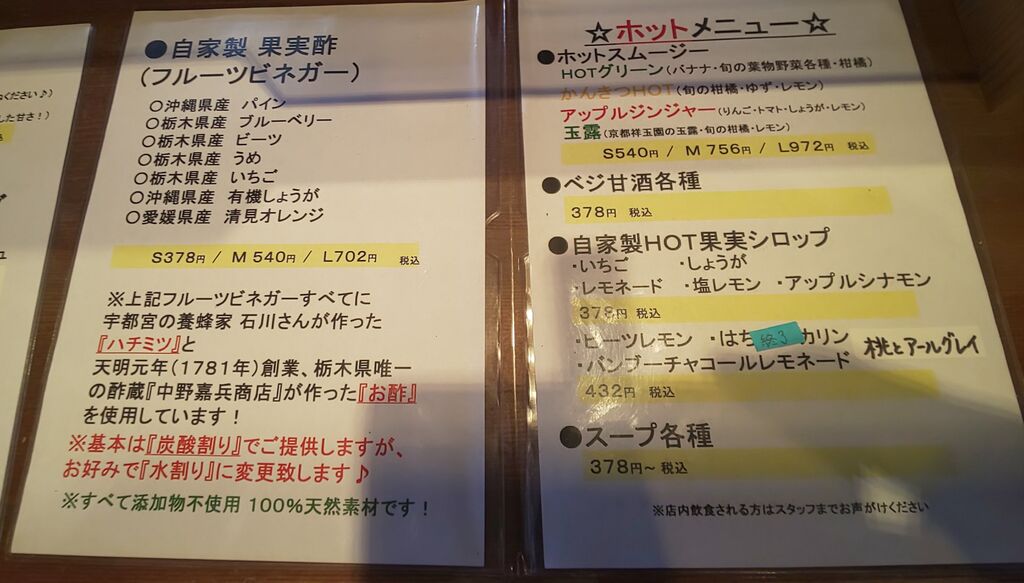 ください♪)
した甘さ！)
●自家製 果実酢
(フルーツビネガー)
○沖縄県産 パイン
○栃木県産 ブルーベリー
○栃木県産 ビーツ
○栃木県産 うめ
○栃木県産 いちご
○沖縄県産 有機しょうが
○愛媛県産 清見オレンジ
S378円 / M 540円 / L702円 税込
※上記フルーツビネガーすべてに
宇都宮の養蜂家 石川さんが作った
『ハチミツ』と
天明元年(1781年)創業、栃木県唯一
の酢蔵『中野嘉兵商店』が作った『お酢』
を使用しています！
※基本は『炭酸割り』でご提供しますが、
お好みで『水割り』に変更致します♪
※すべて添加物不使用 100%天然素材です！
☆ホットメニュー☆
●ホットスムージー
HOTグリーン(バナナ・旬の葉物野菜各種・柑橘)
かんきつHOT(旬の柑橘・ゆず・レモン)
アップルジンジャー(りんご・トマト・しょうが・レモン)
玉露(京都祥玉園の玉露・旬の柑橘・レモン)
S540円 / M 756円 / L972円 税込
●ベジ甘酒各種
378円 税込
●自家製HOT果実シロップ
・いちご ・しょうが
・レモネード ・塩レモン ・アップルシナモン
378円 税込
・ビーツレモン ・はち 終り カリン 桃とアールグレイ
・バンブーチャコールレモネード
432円 税込
●スープ各種
378円～ 税込
※店内飲食される方はスタッフまでお声がけください